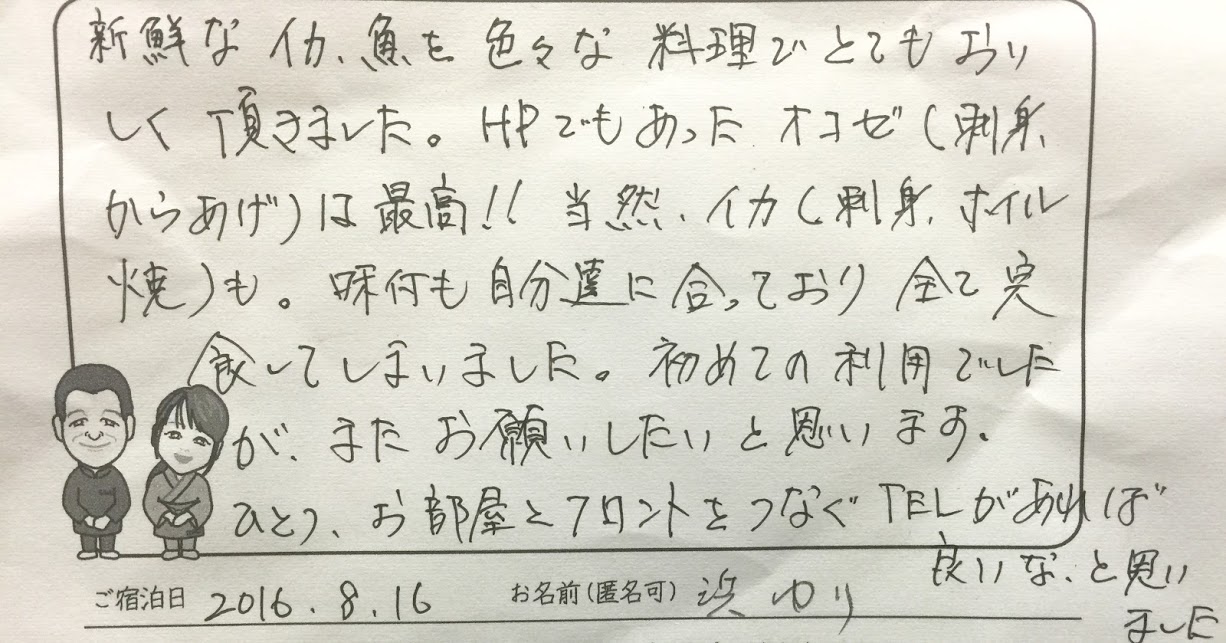 新鮮なイカ、魚を色々な料理でとてもおい
しく頂きました。HPでもあったオコゼ(刺身、
からあげ)は最高!!当然、イカ(刺身、ホイル
焼)も。味付も自分達に合っており全て完
食してしまいました。初めての利用でした
が、またお願いしたいと思います。
ひとつ、お部屋とフロントをつなぐTELがあれば
良いな、と思い
ました
ご宿泊日 2016.8.16 お名前(匿名可) 浜 ゆり